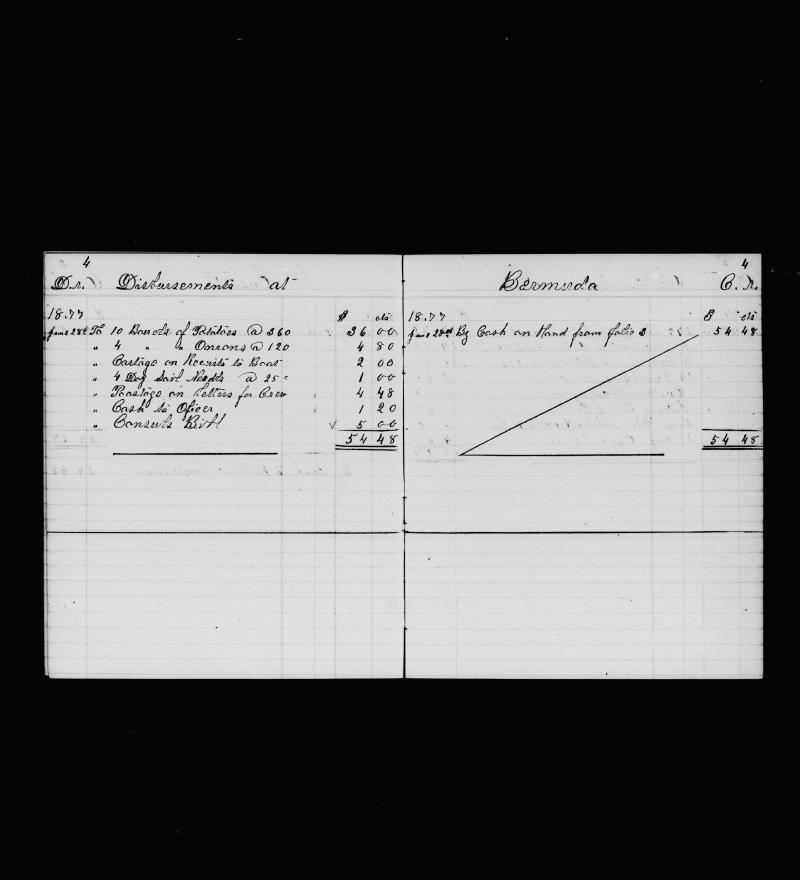 4
Dr. Disbursements at
1877 $ cts
June 28th To 10 Barrels of Potatoes @ 360 36 00
" 4 " " Onions @ 120 4 80
" Cartage on to Boat 2 00
" 4 Doz Sail Needls @ 25 c 1 00
" Poastage on Letters for Crew 4 48
" Cash to Oficer 1 20
" Consuls Bill ✓ 5 00
54 48
4
Bermuda C.r.
1877 $ cts
June 28th By Cash on Hand from folio 3 54 48
54 48